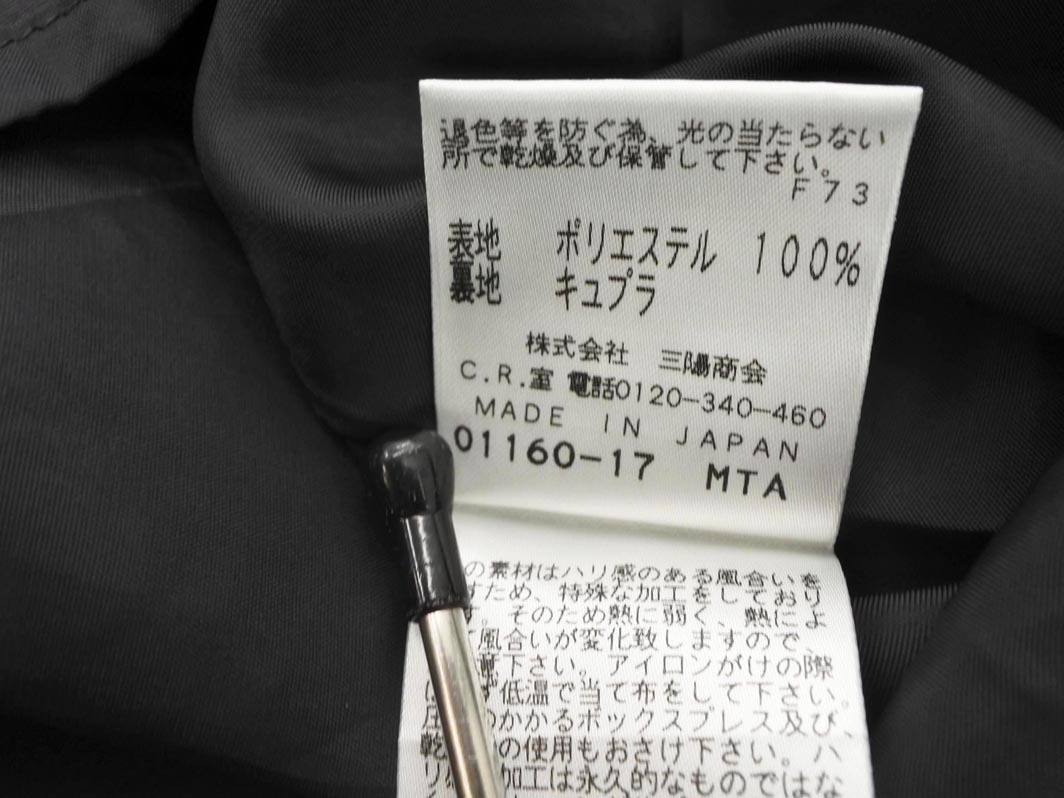 退色等を防ぐ為、光の当たらない
所で乾燥及び保管して下さい。
F73
表地 ポリエステル 100%
裏地 キュプラ
株式会社 三陽商会
C.R.室 電話0120-340-460
MADE IN JAPAN
01160-17 MTA
の素材はハリ感のある風合いを
すため、特殊な加工をしており
す。そのため熱に弱く、熱によ
風合いが変化致しますので、
意下さい。アイロンがけの際
ず低温で当て布をして下さい。
のかかるボックスプレス及び、
乾 の使用もおさけ下さい。ハ
リ 加工は永久的なものではな